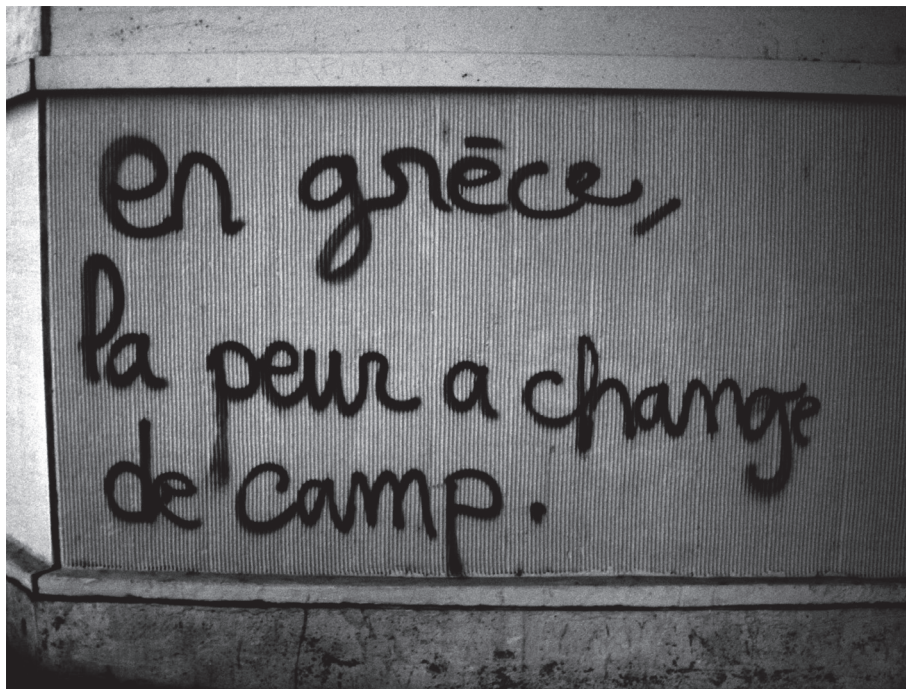 en grēce,
la peur a change
de camp.